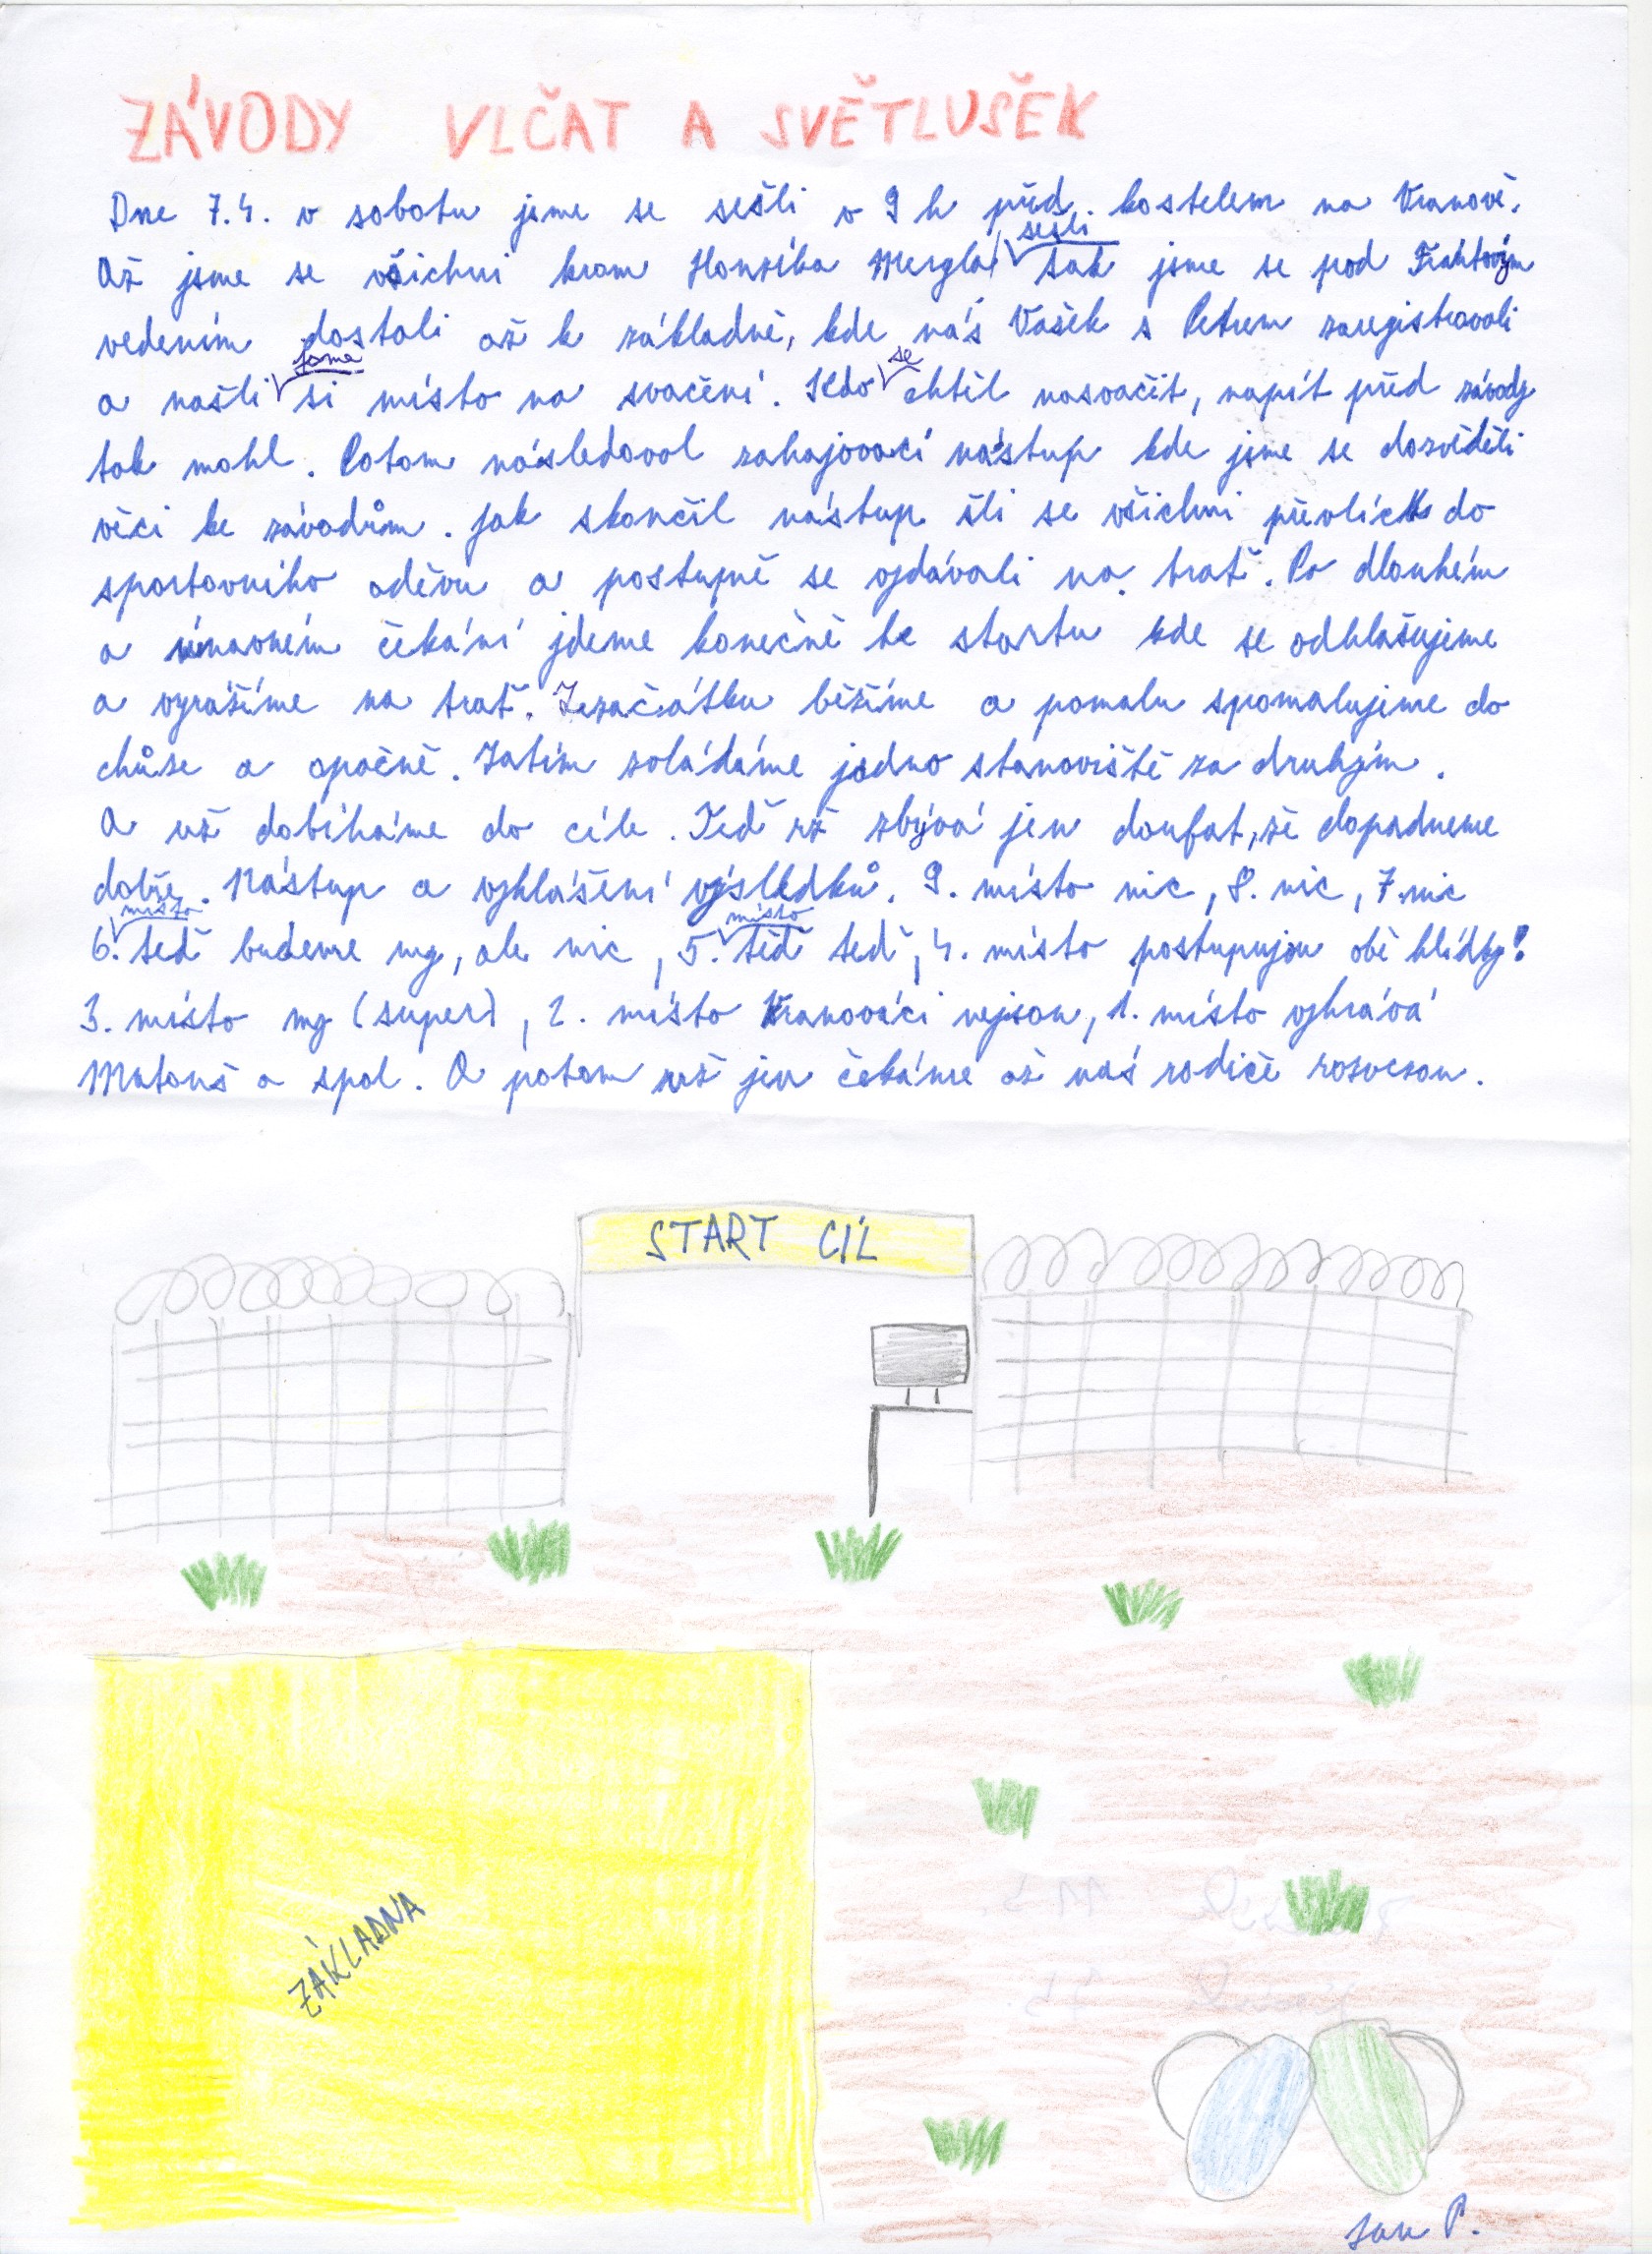 ZÁVODY VLČAT A SVĚTLUŠEK
Dne 7.4. v sobotu jsme se sešli v 9 h před kostelem na Vranově.
Až jsme se všichni krom Honzíka Mergla sešli tak jsme se pod Frahtovým
vedením dostali až k základně, kde nás Vašek s Petrem zaregistrovali
a našli jsme si místo na svačení. Kdo se chtěl nasvačit, napít před závody
tak mohl. Potom následoval zahajovací nástup kde jsme se dozvěděli
věci ke závodům. Jak skončil nástup šli se všichni převlíct do
sportovního oděvu a postupně se vydávali na trať. Po dlouhém
a únavném čekání jdeme konečně ke startu kde se odhlašujeme
a vyrážíme na trať. Zezačátku běžíme a pomalu spomalujeme do
chůze a opačně. Zatím zvládáme jedno stanoviště za druhým.
A už dobíháme do cíle. Teď už zbývá jen doufat, že dopadneme
dobře. Nástup a vyhlášení výsledků. 9. místo nic, 8. nic, 7. nic
6. místo teď budeme my, ale nic, 5. místo teď teď, 4. místo postupujou obě hlídky!
3. místo my (super), 2. místo Vranováci nejsou, 1. místo vyhrává
Matouš a spol. A potom už jen čekáme až nás rodiče rozvezou.
START CÍL
ZÁKLADNA
Jan P.